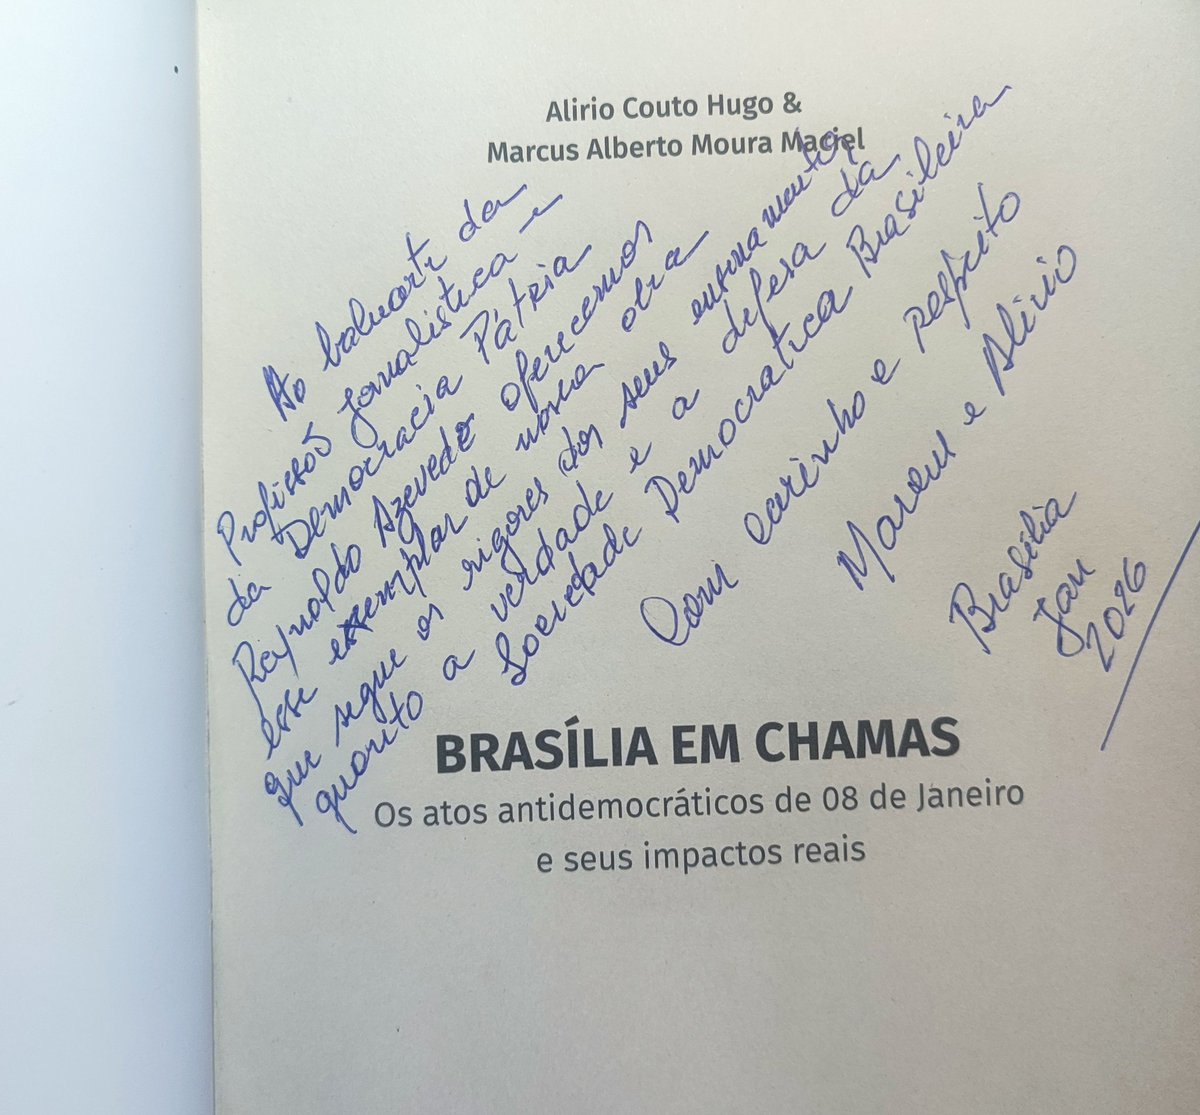 Alirio Couto Hugo &
Marcus Alberto Moura Maciel
Ao baluarte da
Profissão jornalística e
da Democracia Pátria
Reynaldo Azevedo oferecemos
esse exemplar de nossa obra
que segue os rigores dos seus
quanto a verdade e a defesa da
Sociedade Democratica Brasileira
Com carinho e respeito
Marcus e Alirio
Brasília
Jan
2026
BRASÍLIA EM CHAMAS
Os atos antidemocráticos de 08 de Janeiro
e seus impactos reais